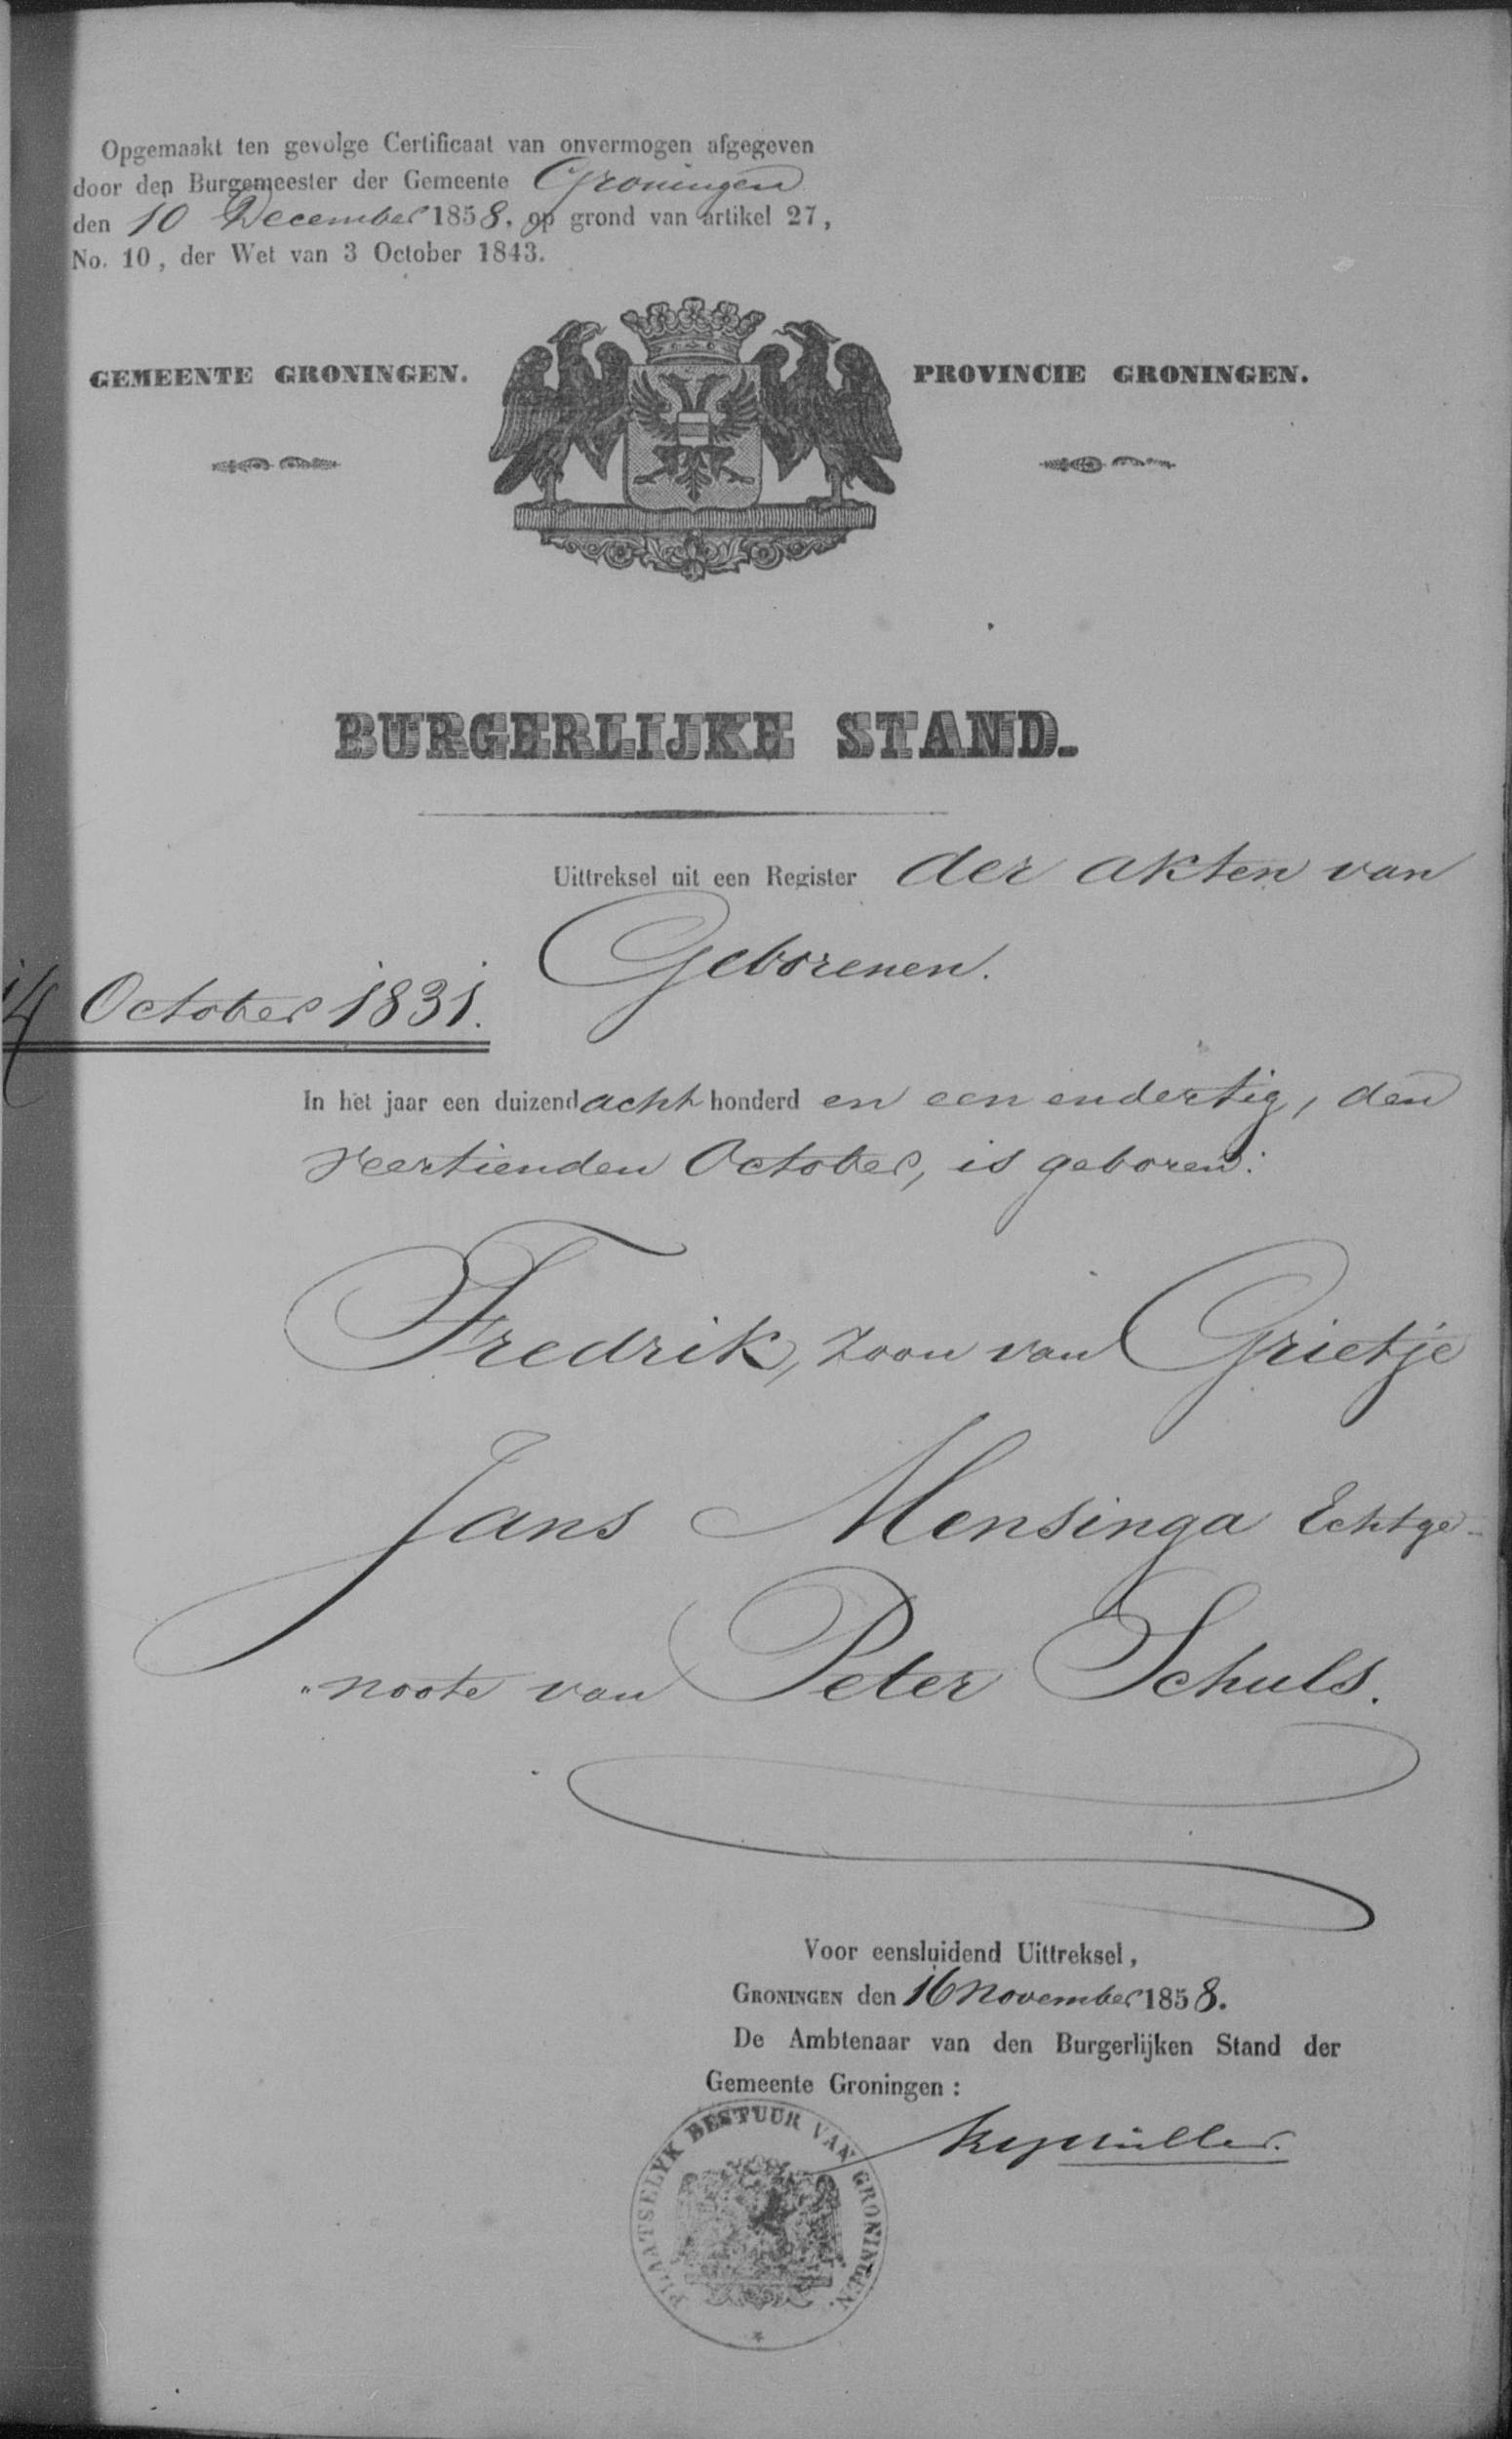 Opgemaakt ten gevolge Certificaat van onvermogen afgegeven
door den Burgemeester der Gemeente Groningen
den 10 December 1858, op grond van artikel 27,
No. 10, der Wet van 3 October 1843.
GEMEENTE GRONINGEN. PROVINCIE GRONINGEN.
BURGERLIJKE STAND.
Uittreksel uit een Register der akten van
Geborenen.
14 October 1831.
In het jaar een duizend acht honderd en een endertig, den
veertienden October, is geboren:
Fredrik, zoon van Grietje
Jans Mensinga Echtge-
"noote van Peter Schuls.
Voor eensluidend Uittreksel,
GRONINGEN den 16 November 1858.
De Ambtenaar van den Burgerlijken Stand der
Gemeente Groningen:
PLAATSELYK BESTUUR VAN GRONINGEN.